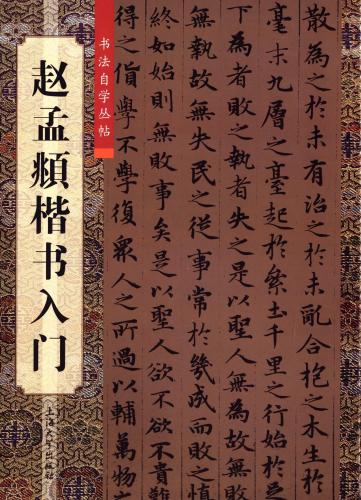 书法自学丛帖
赵孟頫楷书入门
散為之於未有治之於未亂合抱之木生於
毫末九層之臺起於絫土千里之行始於
下為者敗之執者失之是以聖人無為故無敗
無執故無失民之從事常於幾成而敗之慎
終如始則無敗事矣是以聖人欲不欲不貴
得之貨學不學復眾人之所過以輔萬物